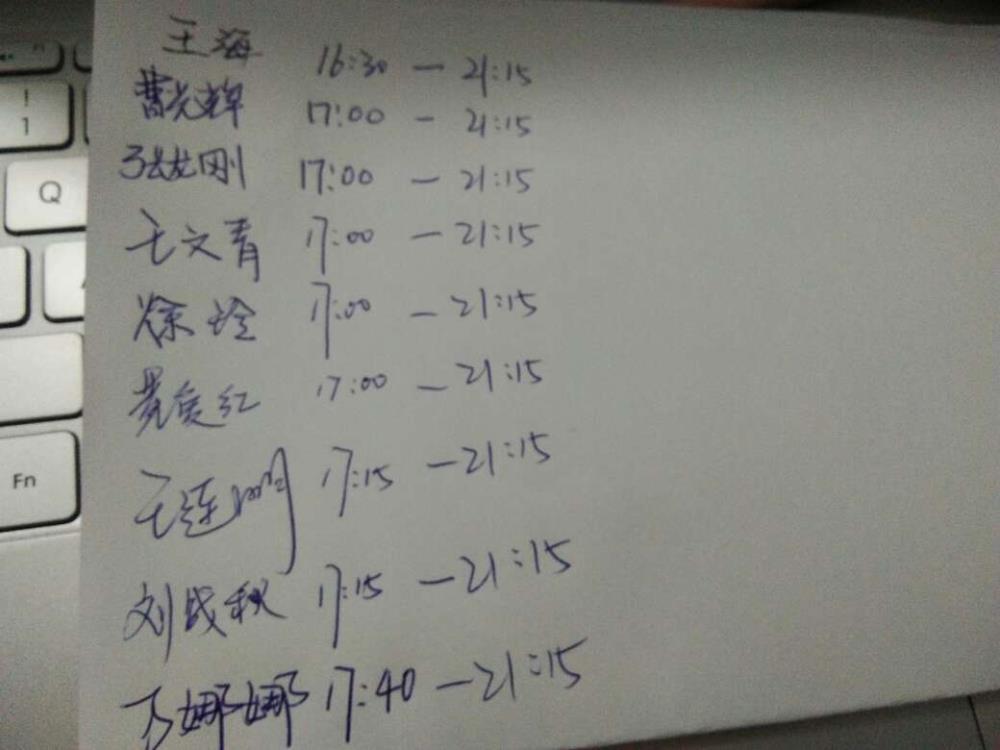 王海 16:30 — 21:15
曹光辉 17:00 — 21:15
张龙刚 17:00 — 21:15
王文青 17:00 — 21:15
徐玲 17:00 — 21:15
17:00 — 21:15
王连明 17:15 — 21:15
刘战秋 17:15 — 21:15
万娜娜 17:40 — 21:15
!
1
Q
Fn